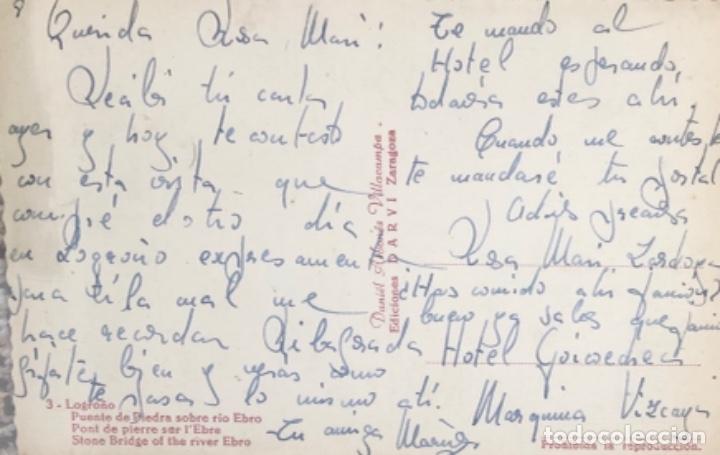 8
Querida Rosa Mari:
Recibí tu carta
ayer y hoy te contesto
con esta vista que
compré el otro día
en Logroño expresamente
para tí la cual me
hace recordar
fíjate bien y veras como
te pasas y lo mismo a tí.
Tu amiga
Te mando al
Hotel esperando,
todavía estes ahí.
Cuando me contestes
te mandaré tu postal
Adiós preciosa
Rosa Mari
¿Has comido ahí
bueno ya sabes que
Hotel
Marquina Vizcaya
Daniel Arbonés Villacampa -
Ediciones DARVI Zaragoza
3 - Logroño
Puente de Piedra sobre rio Ebro
Pont de pierre ser l'Ebre
Stone Bridge of the river Ebro
Prohibida la reproducción.
todocoleccion.net